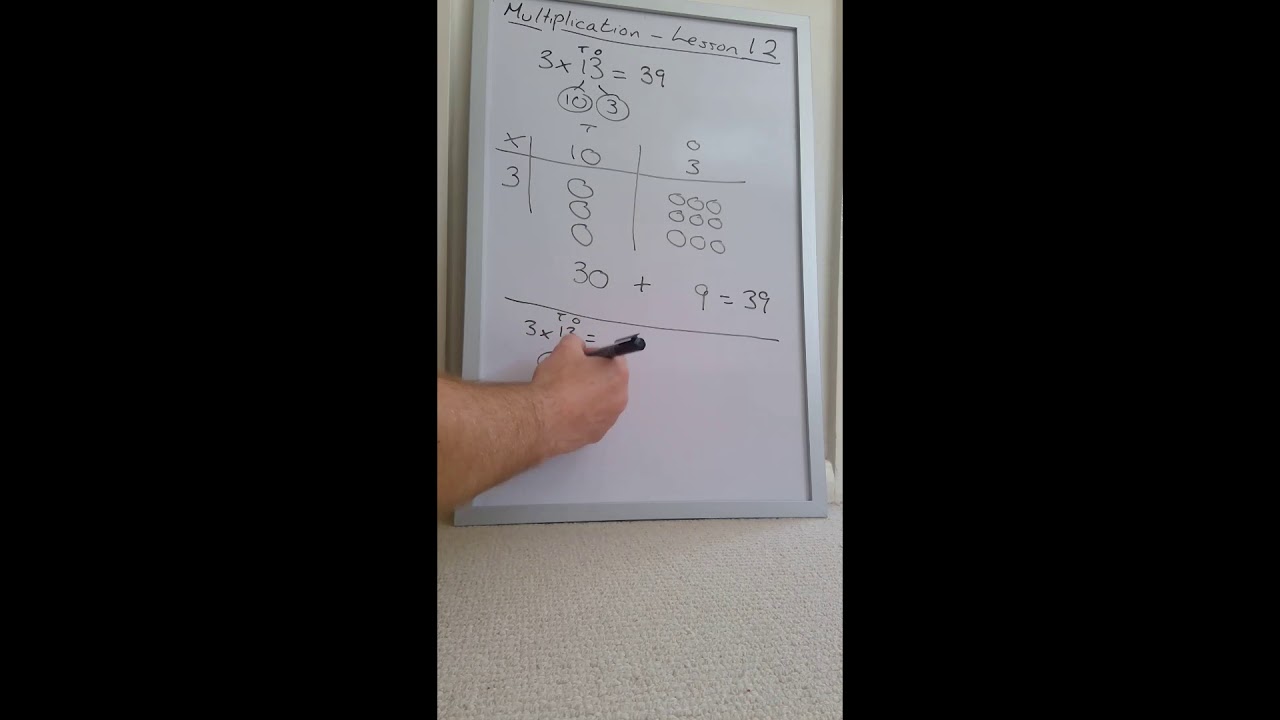 Multiplication - Lesson 12
T O
3 x 13 = 39
10 3
T O
x 10 3
3
30 + 9 = 39
T O
3 x 13 =